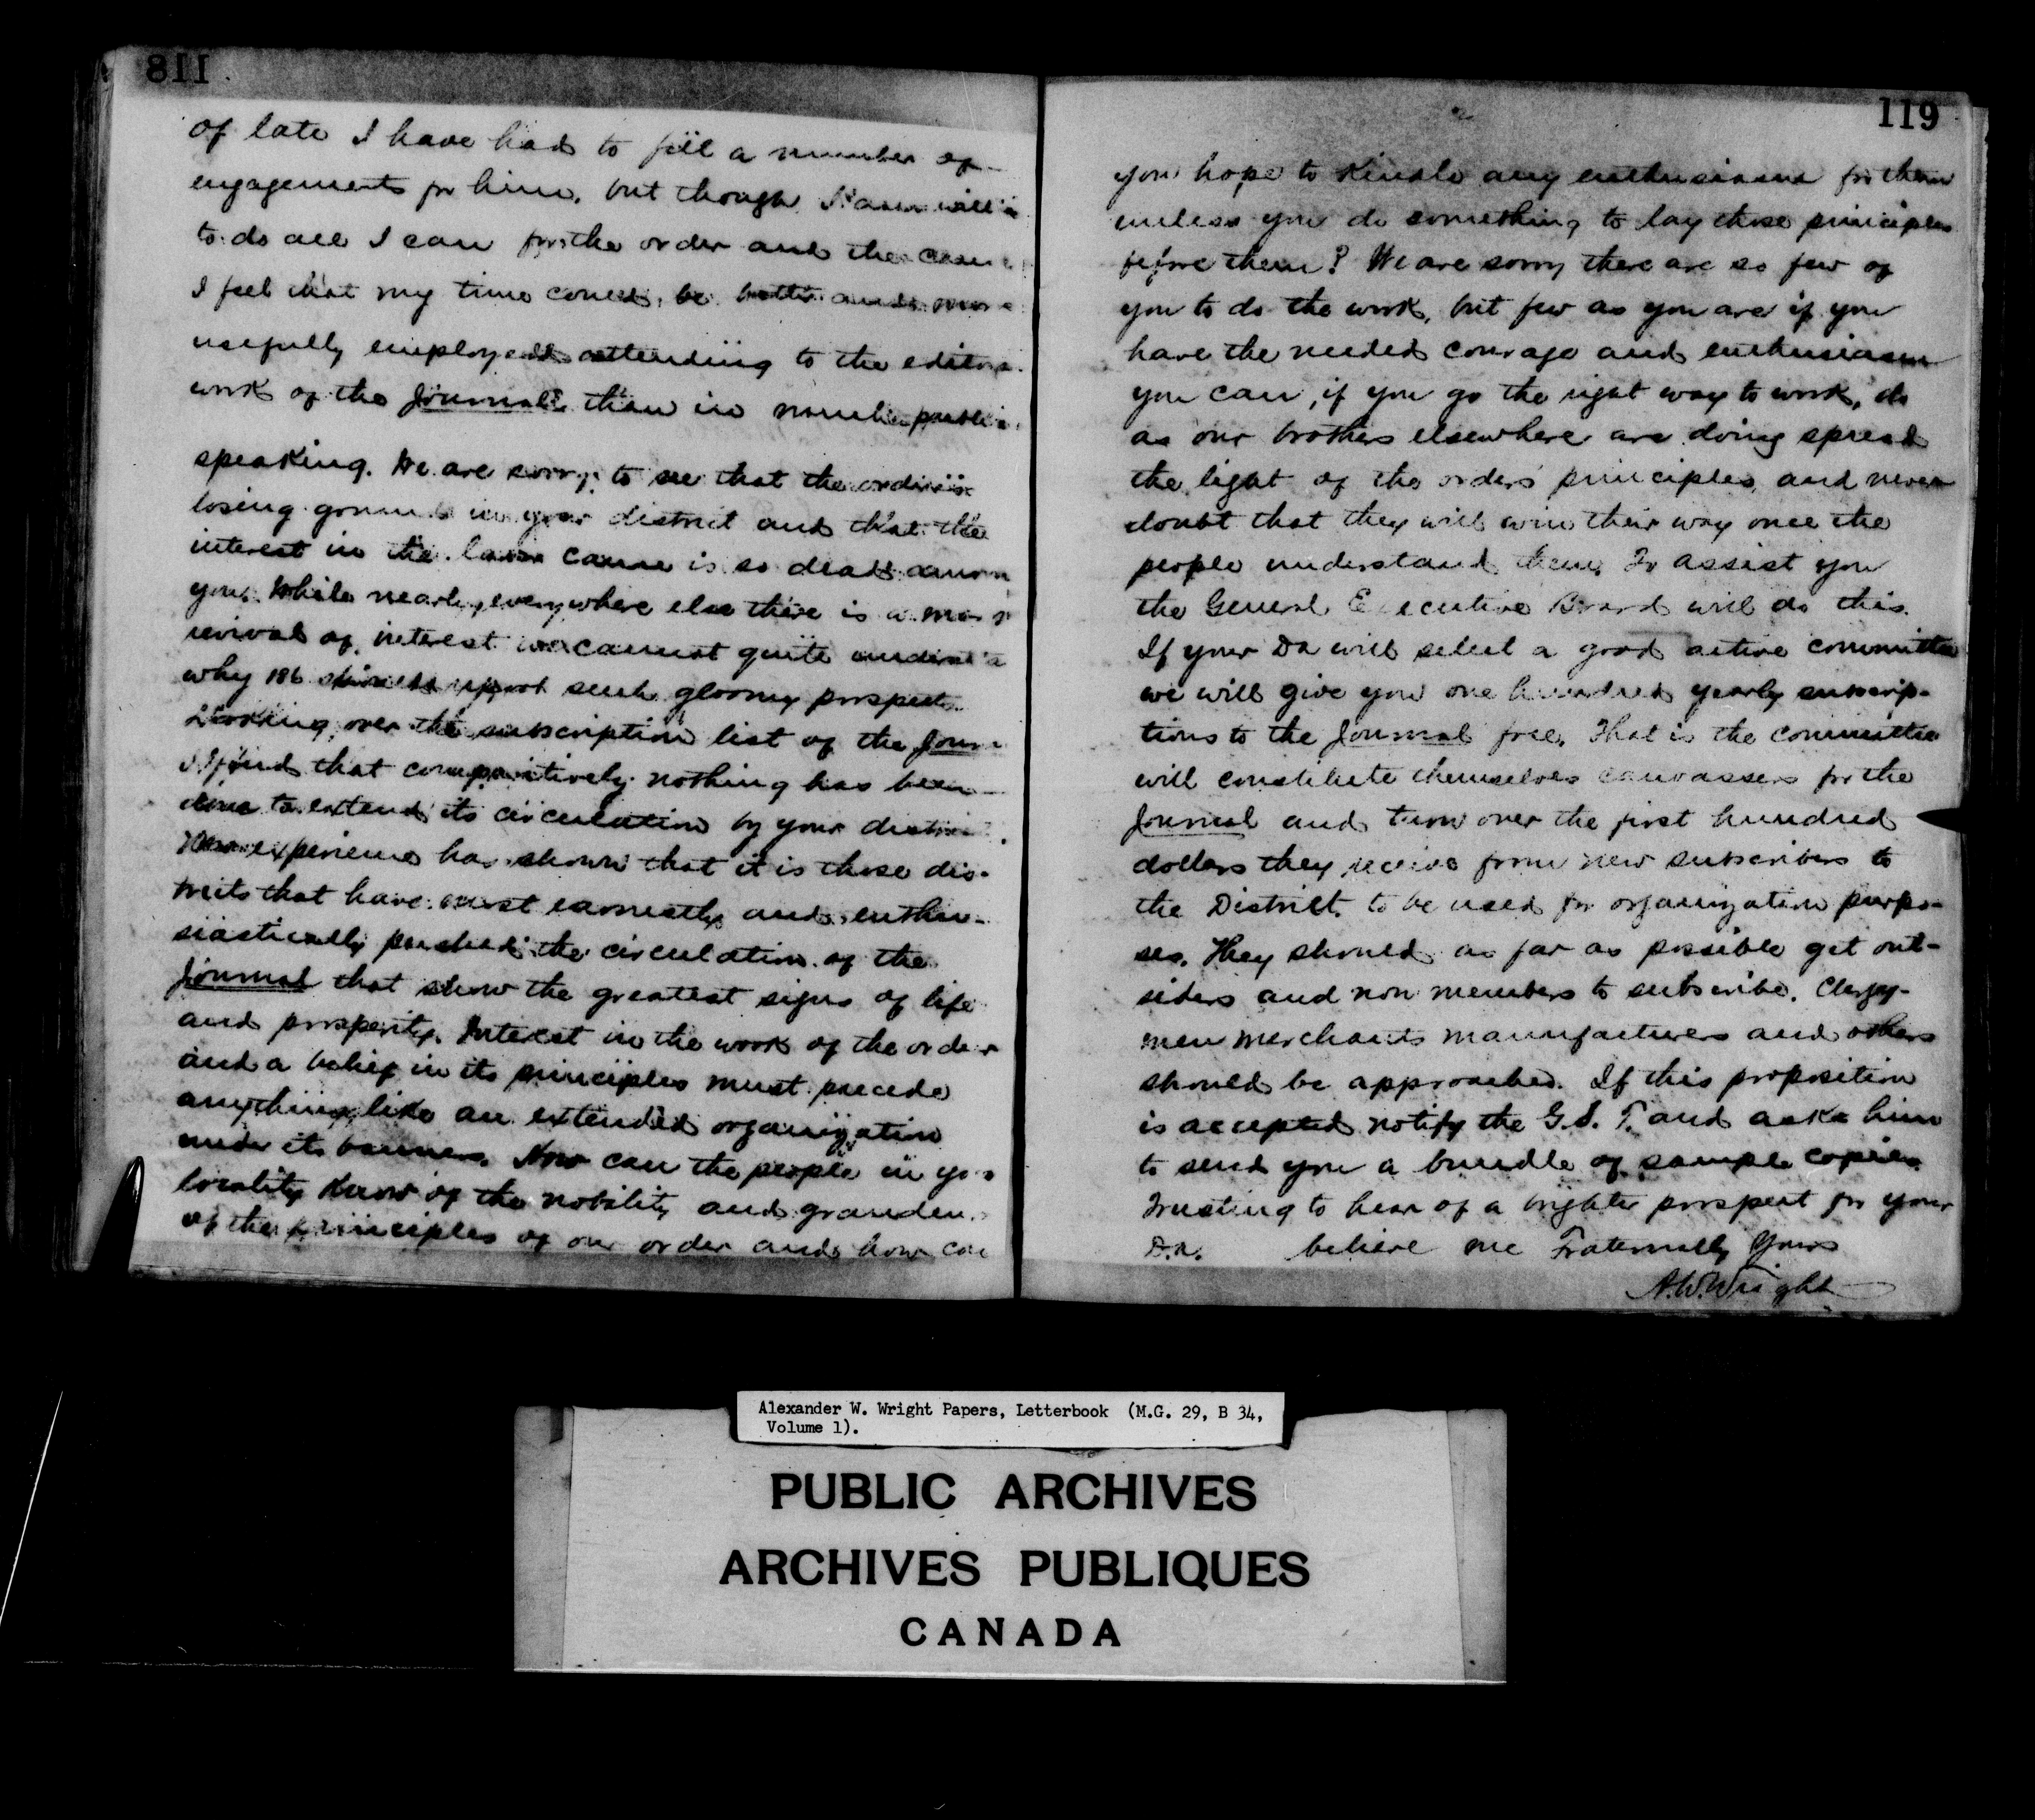 118
of late I have had to fill a number of
engagements for him, but though I am
to do all I can for the order and the cause
I feel that my time could be better and more
usefully employed attending to the
work of the Journal than in
speaking. We are sorry to see that the order is
losing ground in your district and that the
interest in the labor cause is so dead among
you. While nearly everywhere else there is a
revival of interest we cannot quite
why 186 should report such gloomy prospects.
Looking over the subscription list of the
I find that comparitively nothing has been
done to extend its circulation by your district.
experience has shown that it is those dis-
tricts that have most earnestly and enthu-
siastically pushed the circulation of the
Journal that show the greatest signs of life
and prosperity. Interest in the work of the order
and a belief in its principles must precede
anything like an extended organization
under its banners. How can the people in
locality know of the nobility and
of the principles of our order and how can
119
you hope to kindle any enthusiasm for them
unless you do something to lay those principles
before them? We are sorry there are so few of
you to do the work, but few as you are if you
have the needed courage and enthusiasm
you can, if you go the right way to work, do
as our brothers elsewhere are doing spread
the light of the orders principles, and never
doubt that they will win their way once the
people understand them. To assist you
the General Executive Board will do this.
If your DA will select a good active committee
we will give you one hundred yearly subscrip-
tions to the Journal free. That is the committee
will constitute themselves canvassers for the
Journal and turn over the first hundred
dollars they receive from new subscribers to
the District to be used for organization purpo-
ses. They should as far as possible get out-
siders and non members to subscribe. Clergy-
men merchants manufacturers and others
should be approached. If this proposition
is accepted notify the G.S.T. and ask him
to send you a bundle of sample copies.
Trusting to hear of a brighter prospect for your
D.A. believe me Fraternally Yours
A.W.Wright
Alexander W. Wright Papers, Letterbook (M.G. 29, B 34,
Volume 1).
PUBLIC ARCHIVES
ARCHIVES PUBLIQUES
CANADA